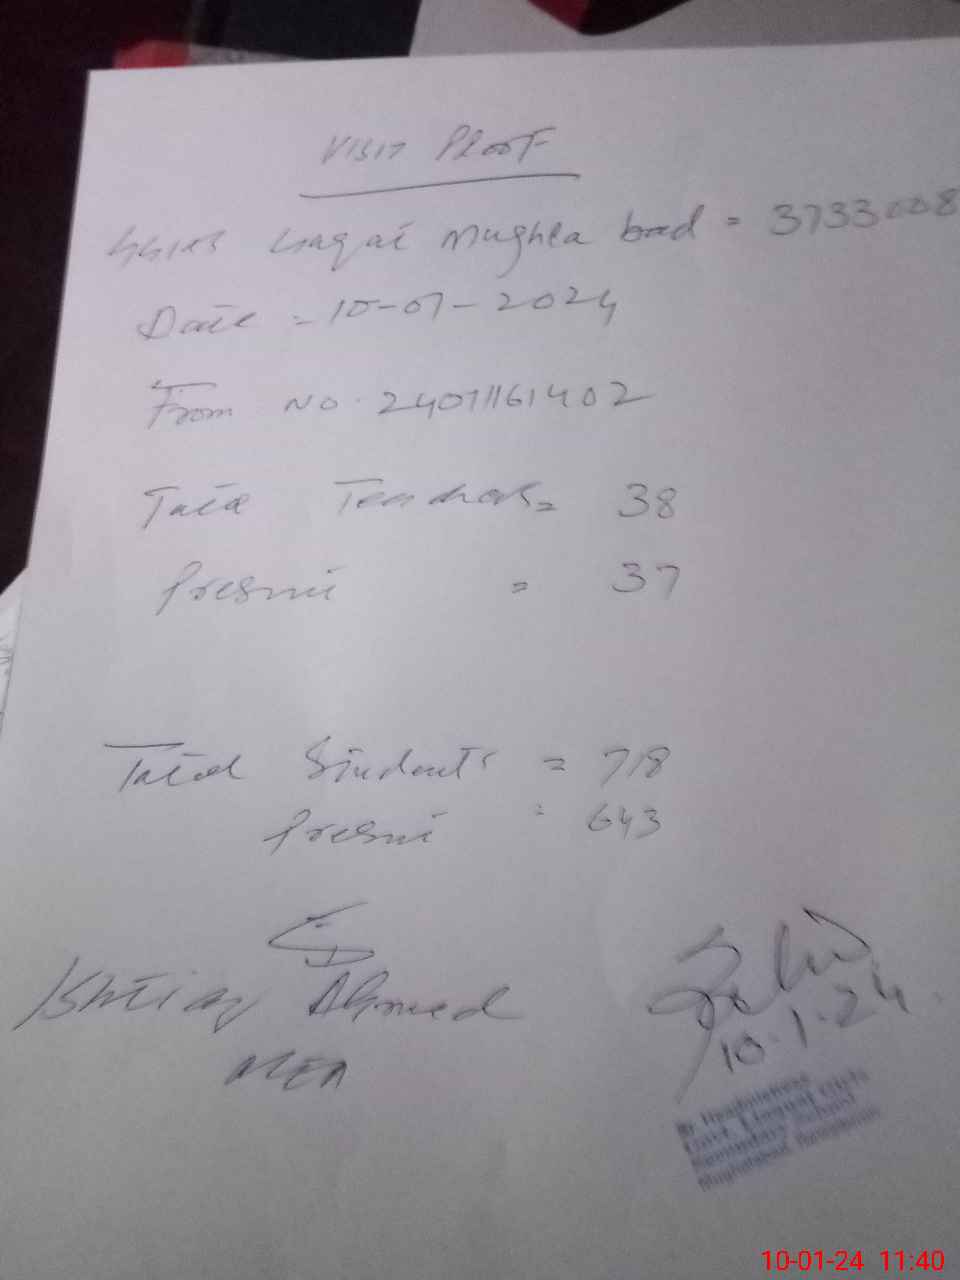 VISIT PROOF
Liaqat Mughla bad = 37330008
Date = 10-01-2024
From No. 24011161402
Total Teachers = 38
Present = 37
Total Students = 718
Present = 643
Ishtiaq Ahmed
MEA
10.1.24
Sr Headmistress
Govt. Liaqat Girls
Secondary School
Mughlabad, Rawalpindi
10-01-24 11:40